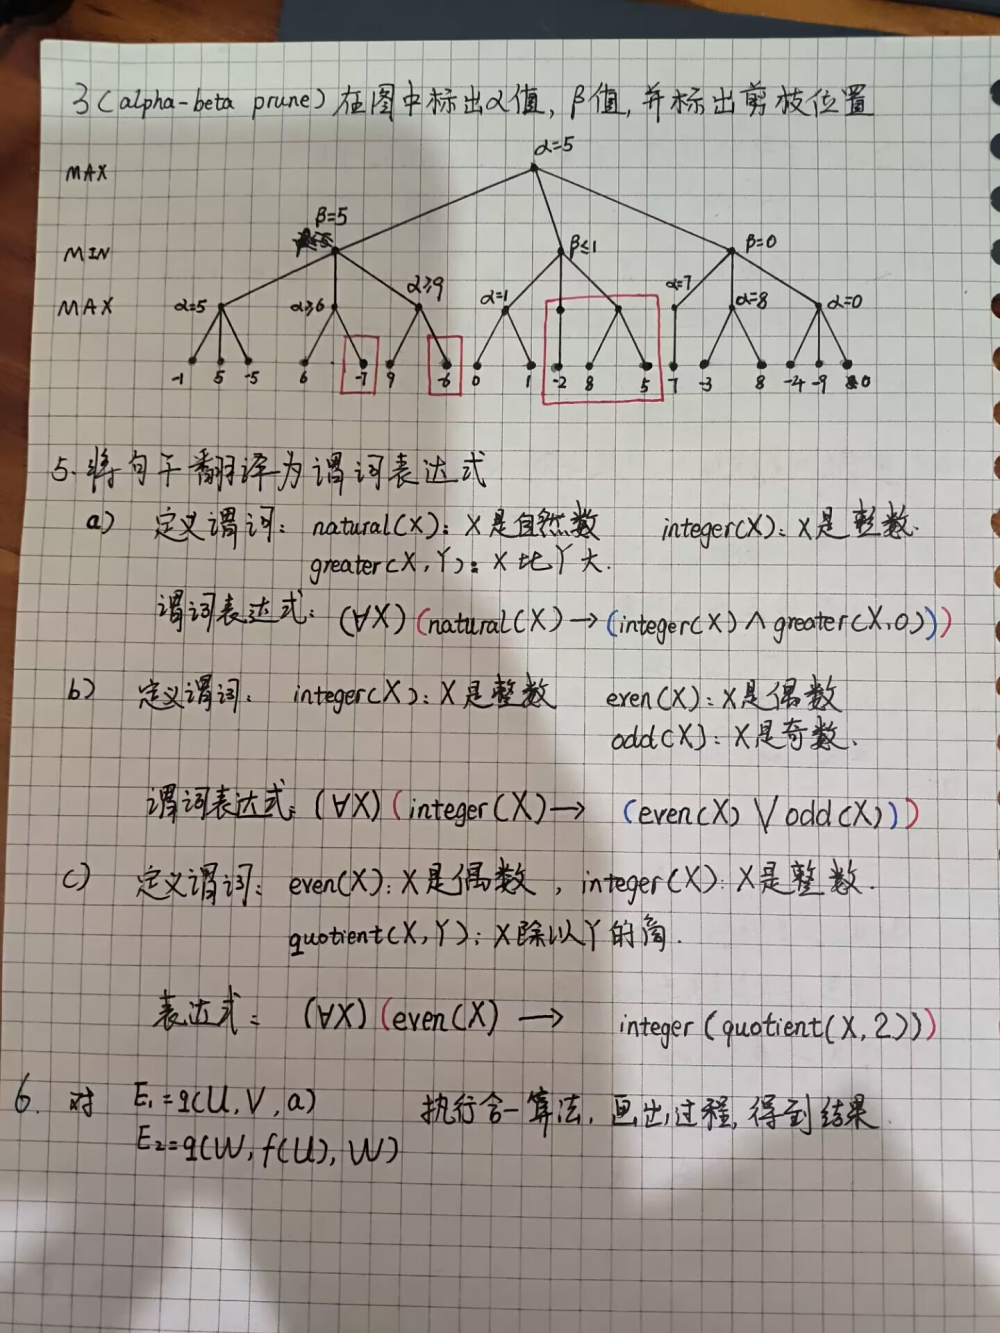 3(alpha-beta prune)在图中标出α值,β值,并标出剪枝位置
α=5
MAX
β=5
MIN
β≤1
β=0
MAX
α=5
α≥6
α≥9
α=1
α=7
α=8
α=0
-1 5 -5 6 -7 9 -6 0 1 -2 8 5 7 -3 8 -4 -9 0
5.将句子翻译为谓词表达式
a) 定义谓词: natural(X): X是自然数 integer(X): X是整数.
greater(X,Y): X比Y大.
谓词表达式: (∀X)(natural(X)→(integer(X)∧greater(X,0)))
b) 定义谓词: integer(X): X是整数 even(X): X是偶数
odd(X): X是奇数.
谓词表达式: (∀X)(integer(X)→ (even(X)∨odd(X)))
c) 定义谓词: even(X): X是偶数, integer(X): X是整数.
quotient(X,Y): X除以Y的商.
表达式: (∀X)(even(X) → integer(quotient(X,2)))
6. 对 E₁=q(U,V,a) 执行合一算法,画出过程,得到结果.
E₂=q(W,f(U),W)